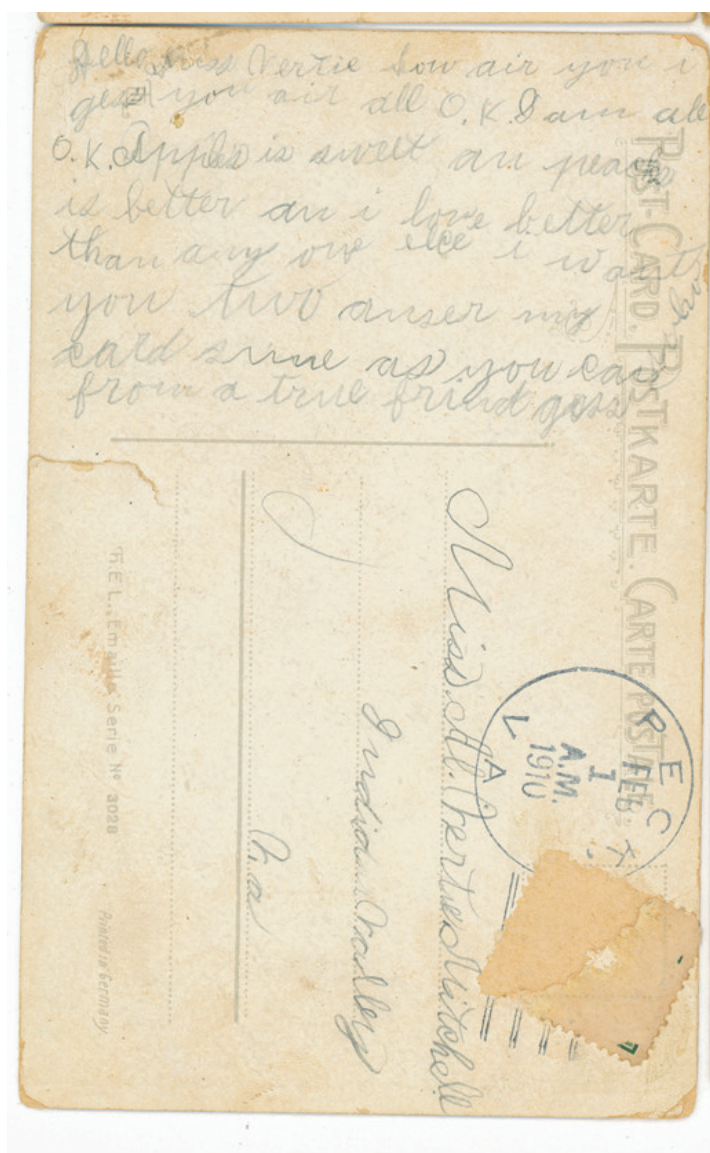 Hello miss Vertie how air you i
gess you air all O.K. I am all
O.K. Apples is sweet an peaches
is better an i love better
than any one else i want
you two anser my
card sune as you can
from a true frind gess
POST-CARD. POSTKARTE. CARTE POSTALE.
REC
FEB
1
A.M.
1910
LA
Miss. Al. Vertie Mitchell
Indian Valley
Va
T.E.L. Emaille Serie No 3028
Printed in Germany